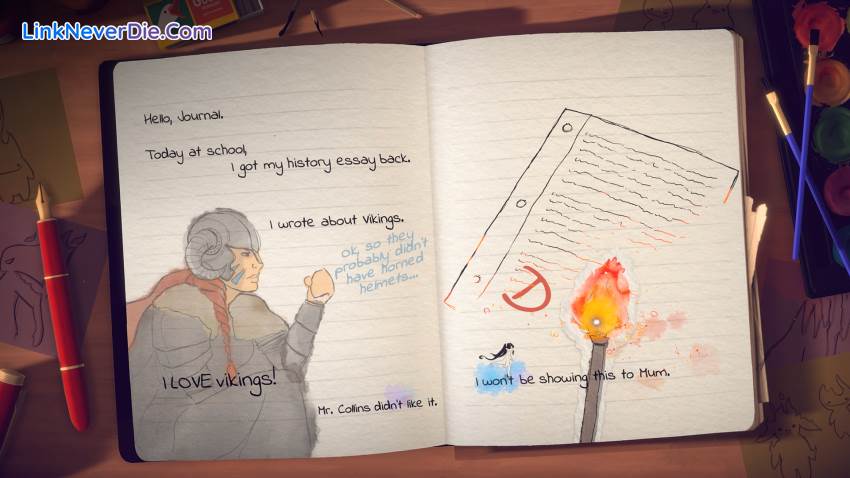 LinkNeverDie.Com
Hello, Journal.
Today at school,
I got my history essay back.
I wrote about Vikings.
ok, so they
probably didn't
have horned
helmets...
I LOVE vikings!
Mr. Collins didn't like it.
D
I won't be showing this to Mum.